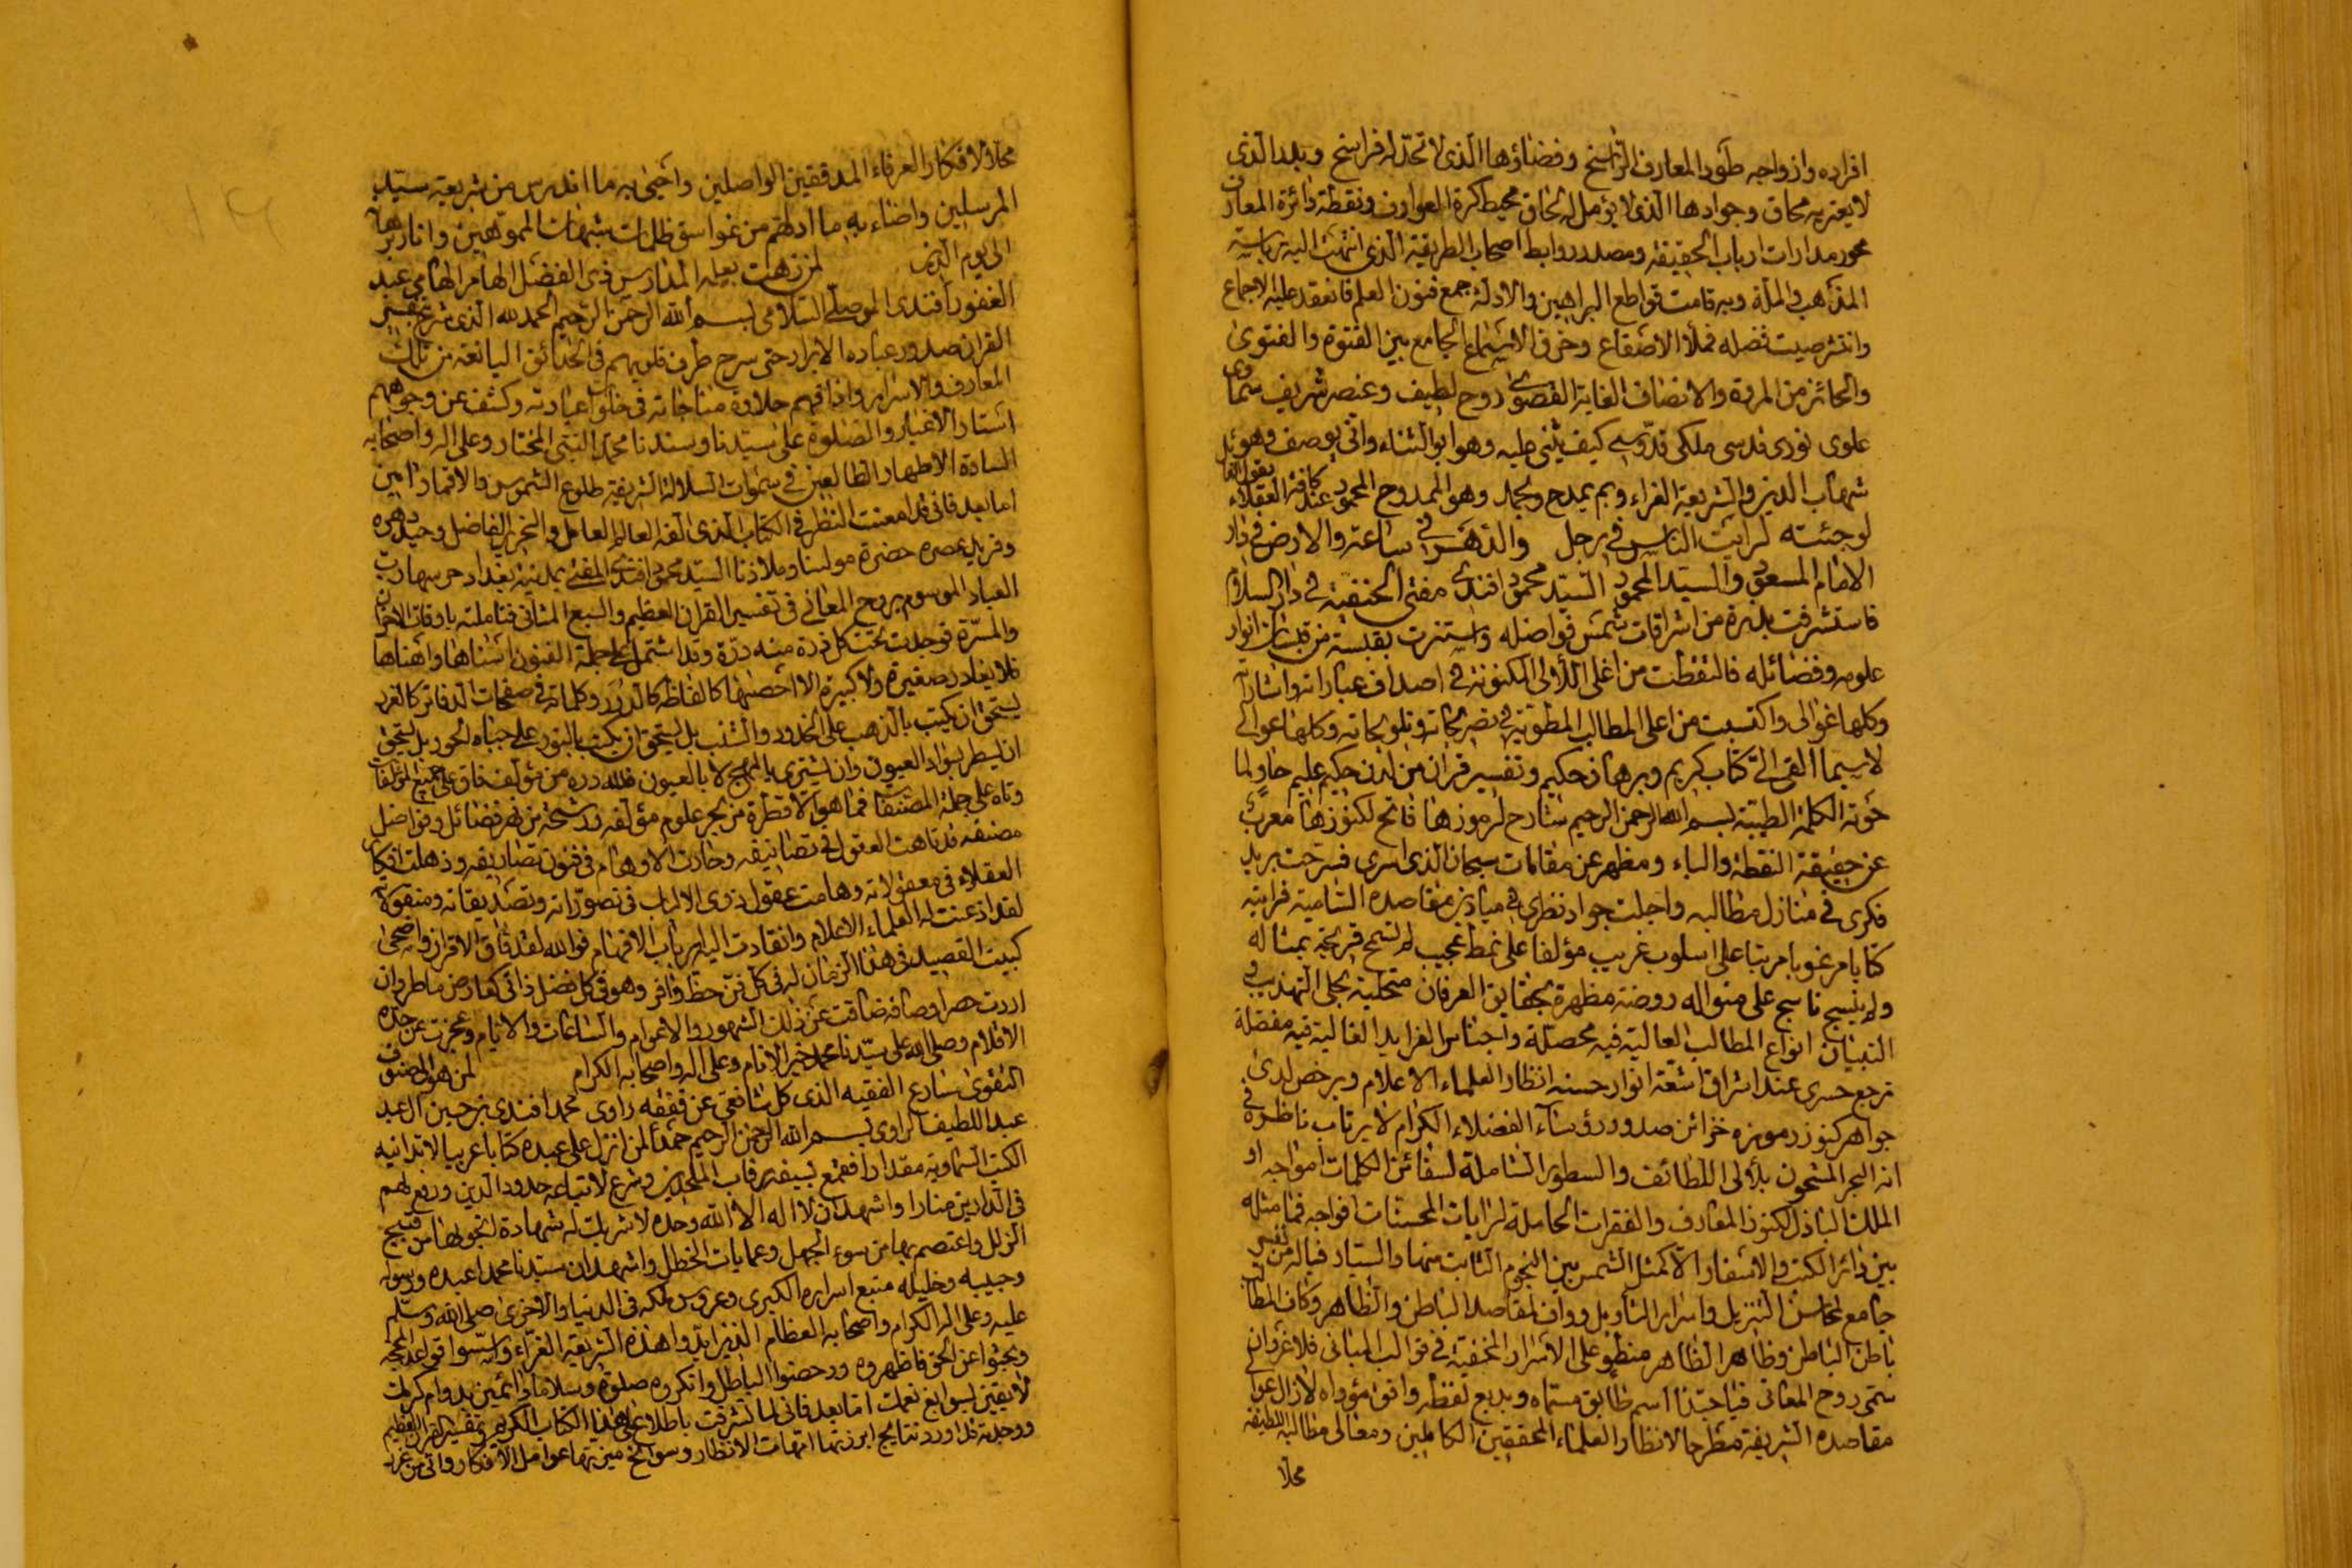 افراده وازواجه طود المعارف الراسخ وفضاؤها الذى لا تحد له فراسخ وبلد الذى
لا يعتريه محاق وجوادها الذى لا يؤمل له لحاق محيط كرة العوارف ونقطة دائرة المعارف
محور مدارات ارباب الحقيقة ومصدر روابط اصحاب الطريقة الذى انتهت اليه رياسة
المذهب والملة وبه قامت قواطع البراهين والادلة جمع فنون العلم فانعقد عليه الاجماع
وانتشر صيت فضله فملأ الاصقاع وخرق الاسماع الجامع بين الفتوة والفتوى
والحائز من المروة والانصاف الغاية القصوى روح لطيف وعنصر شريف سماوى
علوى نورى قدسى ملكى قدوسى كيف يثنى عليه وهو ابو الثناء وانى يوصف وهو
شهاب الدين والشريعة الغراء وبم يمدح ويحمد وهو الممدوح المحمود عند كافة العقلاء
لو جئته لرايت الناس فى رجل والدهر فى ساعة والارض فى دار
الامام المسعود والسيد المحمود السيد محمود افندى مفتى الحنفية فى دار السلام
فاستشرفت بذرة من اشراقات شمس فواضله واستنرت بقبسة من انوار
علومه وفضائله فالتقطت من اغلى اللألى المكنونة فى اصداف عباراته واشاراته
وكلها غوالى واكتسبت من اعلى المطالب المطوية فى تصريحاته وتلويحاته وكلها عوالى
لا سيما القى الى كتاب كريم وبرهان حكيم وتفسير قران من لدن حكيم عليم حاو لما
حوته الكلمة الطيبة بسم الله الرحمن الرحيم شارح لرموزها فاتح لكنوزها معرب
عن حقيقة النقطة والباء ومظهر عن مقامات سبحان الذى اسرى فسرحت بريد
فكرى فى منازل مطالبه واجلت جواد نظرى فى ميادين مقاصده السامية فرايته
كتابا مرغوبا مرتبا على اسلوب غريب مؤلفا على نمط عجيب لم تسمح قريحة بمثاله
ولم ينسج ناسج على منواله روضة مظهرة بحقايق العرفان متحلية بحلى التهذيب و
التبيان انواع المطالب العالية فيه محصلة واجناس الفرايد الغالية فيه مفصلة
ترجع حسرى عند اشراق اشعة انوار حسنه انظار العلماء الاعلام ويرخص لدى
جواهر كنوز رموزه خزائن صدور رؤساء الفضلاء الكرام لا يرتاب ناظره فى
انه البحر المشحون بلألى اللطائف والسطور الشاملة لسفائن الكلمات امواجه او
الملك الباذل لكنوز المعارف والفقرات الحاملة لرايات المحسنات افواجه فما مثله
بين دائر الكتب والاسفار الا كمثل الشمس بين النجوم الثابت منها والسيار فياله من تفسير
جامع لمحاسن التنزيل واسرار التأويل وواف لمقاصد الباطن والظاهر وكاف لمطالب
باطن الباطن وظاهر الظاهر منطو على الاسرار المخفية فى قوالب المبانى فلا غرو ان
سمى روح المعانى فيا حبذا اسم طابق مسماه وبديع لفظ وافق مؤداه لا زال عوالى
مقاصده الشريفة مطرحا لانظار العلماء المحققين الكاملين ومعالى مطالبه اللطيفة
محلا
محلا لافكار العرفاء المدققين الواصلين واحيى به ما اندرس من شريعة سيد
المرسلين واضاء به ما ادلهم من غواسق ظلمات شبهات المموهين وانار برهانه
الى يوم الدين لمن زهت بعلمه المدارس ذى الفضل الهامر الهامى عبد
الغفور افندى الموصلى السلامى بسم الله الرحمن الرحيم الحمد لله الذى شرح بتفسير
القران صدور عباده الابرار حتى سرح طرف قلوبهم فى الحدائق اليانعة من تلك
المعارف والاسرار واذاقهم حلاوة مناجاته فى خلوات عبادته وكشف عن وجوههم
استار الاغيار والصلوة على سيدنا وسندنا محمد النبى المختار وعلى اله واصحابه
السادة الاطهار الطالعين فى سموات السلالة الشريفة طلوع الشموس والاقمار امين
اما بعد فانى قد امعنت النظر فى الكتاب الذى الفه العالم العامل والنحرير الفاضل وحيد دهره
وفريد عصره حضرة مولينا وملاذنا السيد محمود افندى المفتى بمدينة بغداد حرسها رب
العباد الموسوم بروح المعانى فى تفسير القران العظيم والسبع المثانى فتاملته باوقات الاحزان
والمسرة فوجدت تحت كل ذرة منه درة وقد اشتمل على جملة الفنون اسناها واهناها
فلا يغادر صغيرة ولا كبيرة الا احصيها كالفاظه كالدرر وكلماته فى صفحات الدفاتر كالغرر
يستحق ان يكتب بالذهب على الخدود والشنب بل يستحق ان يكتب بالنور على جباه الحور بل يستحق
ان يسطر بسواد العيون وان يشترى بالمهج لا بالعيون فلله دره من مؤلف فاق على جميع المؤلفات
وتاه على جملة المصنفات فما هو الا قطرة من بحر علوم مؤلفه ورشحة من نهر فضائل وفواضل
مصنفه قد تاهت العقول فى تصانيفه وحارت الاوهام فى فنون تصاريفه وذهلت افكار
العقلاء فى معقولاته وهامت عقول ذوى الالباب فى تصوراته وتصديقاته ومنقولاته
لقد اذعنت له العلماء الاعلام وانقادت اليه ارباب الافهام فوالله لقد فاق الاقران واضحى
كبيت القصيد فى هذا الزمان له فى كل فن حظ وافر وهو فى كل فضل ذاتى كعارض ماطر وان
اردت حصر اوصافه ضاقت عن ذلك الشهور والاعوام والساعات والايام وعجزت عن حده
الاقلام وصلى الله على سيدنا محمد خير الانام وعلى اله واصحابه الكرام لمن هو المصنف
التقوى سارع الفقيه الذى كل شافعى عن فقهه راوى محمد افندى بن حسين ال عبد
عبد اللطيف الراوى بسم الله الرحمن الرحيم حمدا لمن انزل على عبده كتابا عربيا لا تدانيه
الكتب السماوية مقدارا فقمع بسيفه رقاب الملحدين وشرع لاتباعه حدود الدين ورفع لهم
فى الدارين منارا واشهد ان لا اله الا الله وحده لا شريك له شهادة انجو بها من قبيح
الزلل واعتصم بها من سوء الجهل وعمايات الخطل واشهد ان سيدنا محمدا عبده ورسوله
وحبيبه وخليله منبع اسراره الكبرى وعروس ملكه فى الدنيا والاخرى صلى الله وسلم
عليه وعلى اله الكرام واصحابه العظام الذين ايدوا هذه الشريعة الغراء واسسوا قواعد المحجة
وبحثوا عن الحق فاظهروه ودحضوا الباطل وانكروه صلوة وسلاما دائمين بدوام كرمك
لائقين بسوابغ نعمك اما بعد فانى لما تشرفت باطلاعى على هذا الكتاب الكريم وتفسير القران العظيم
ووجدته قد اورد نتايج ابرزتها امهات الانظار وسوانح ميزتها عوامل الافكار واتى من غرر